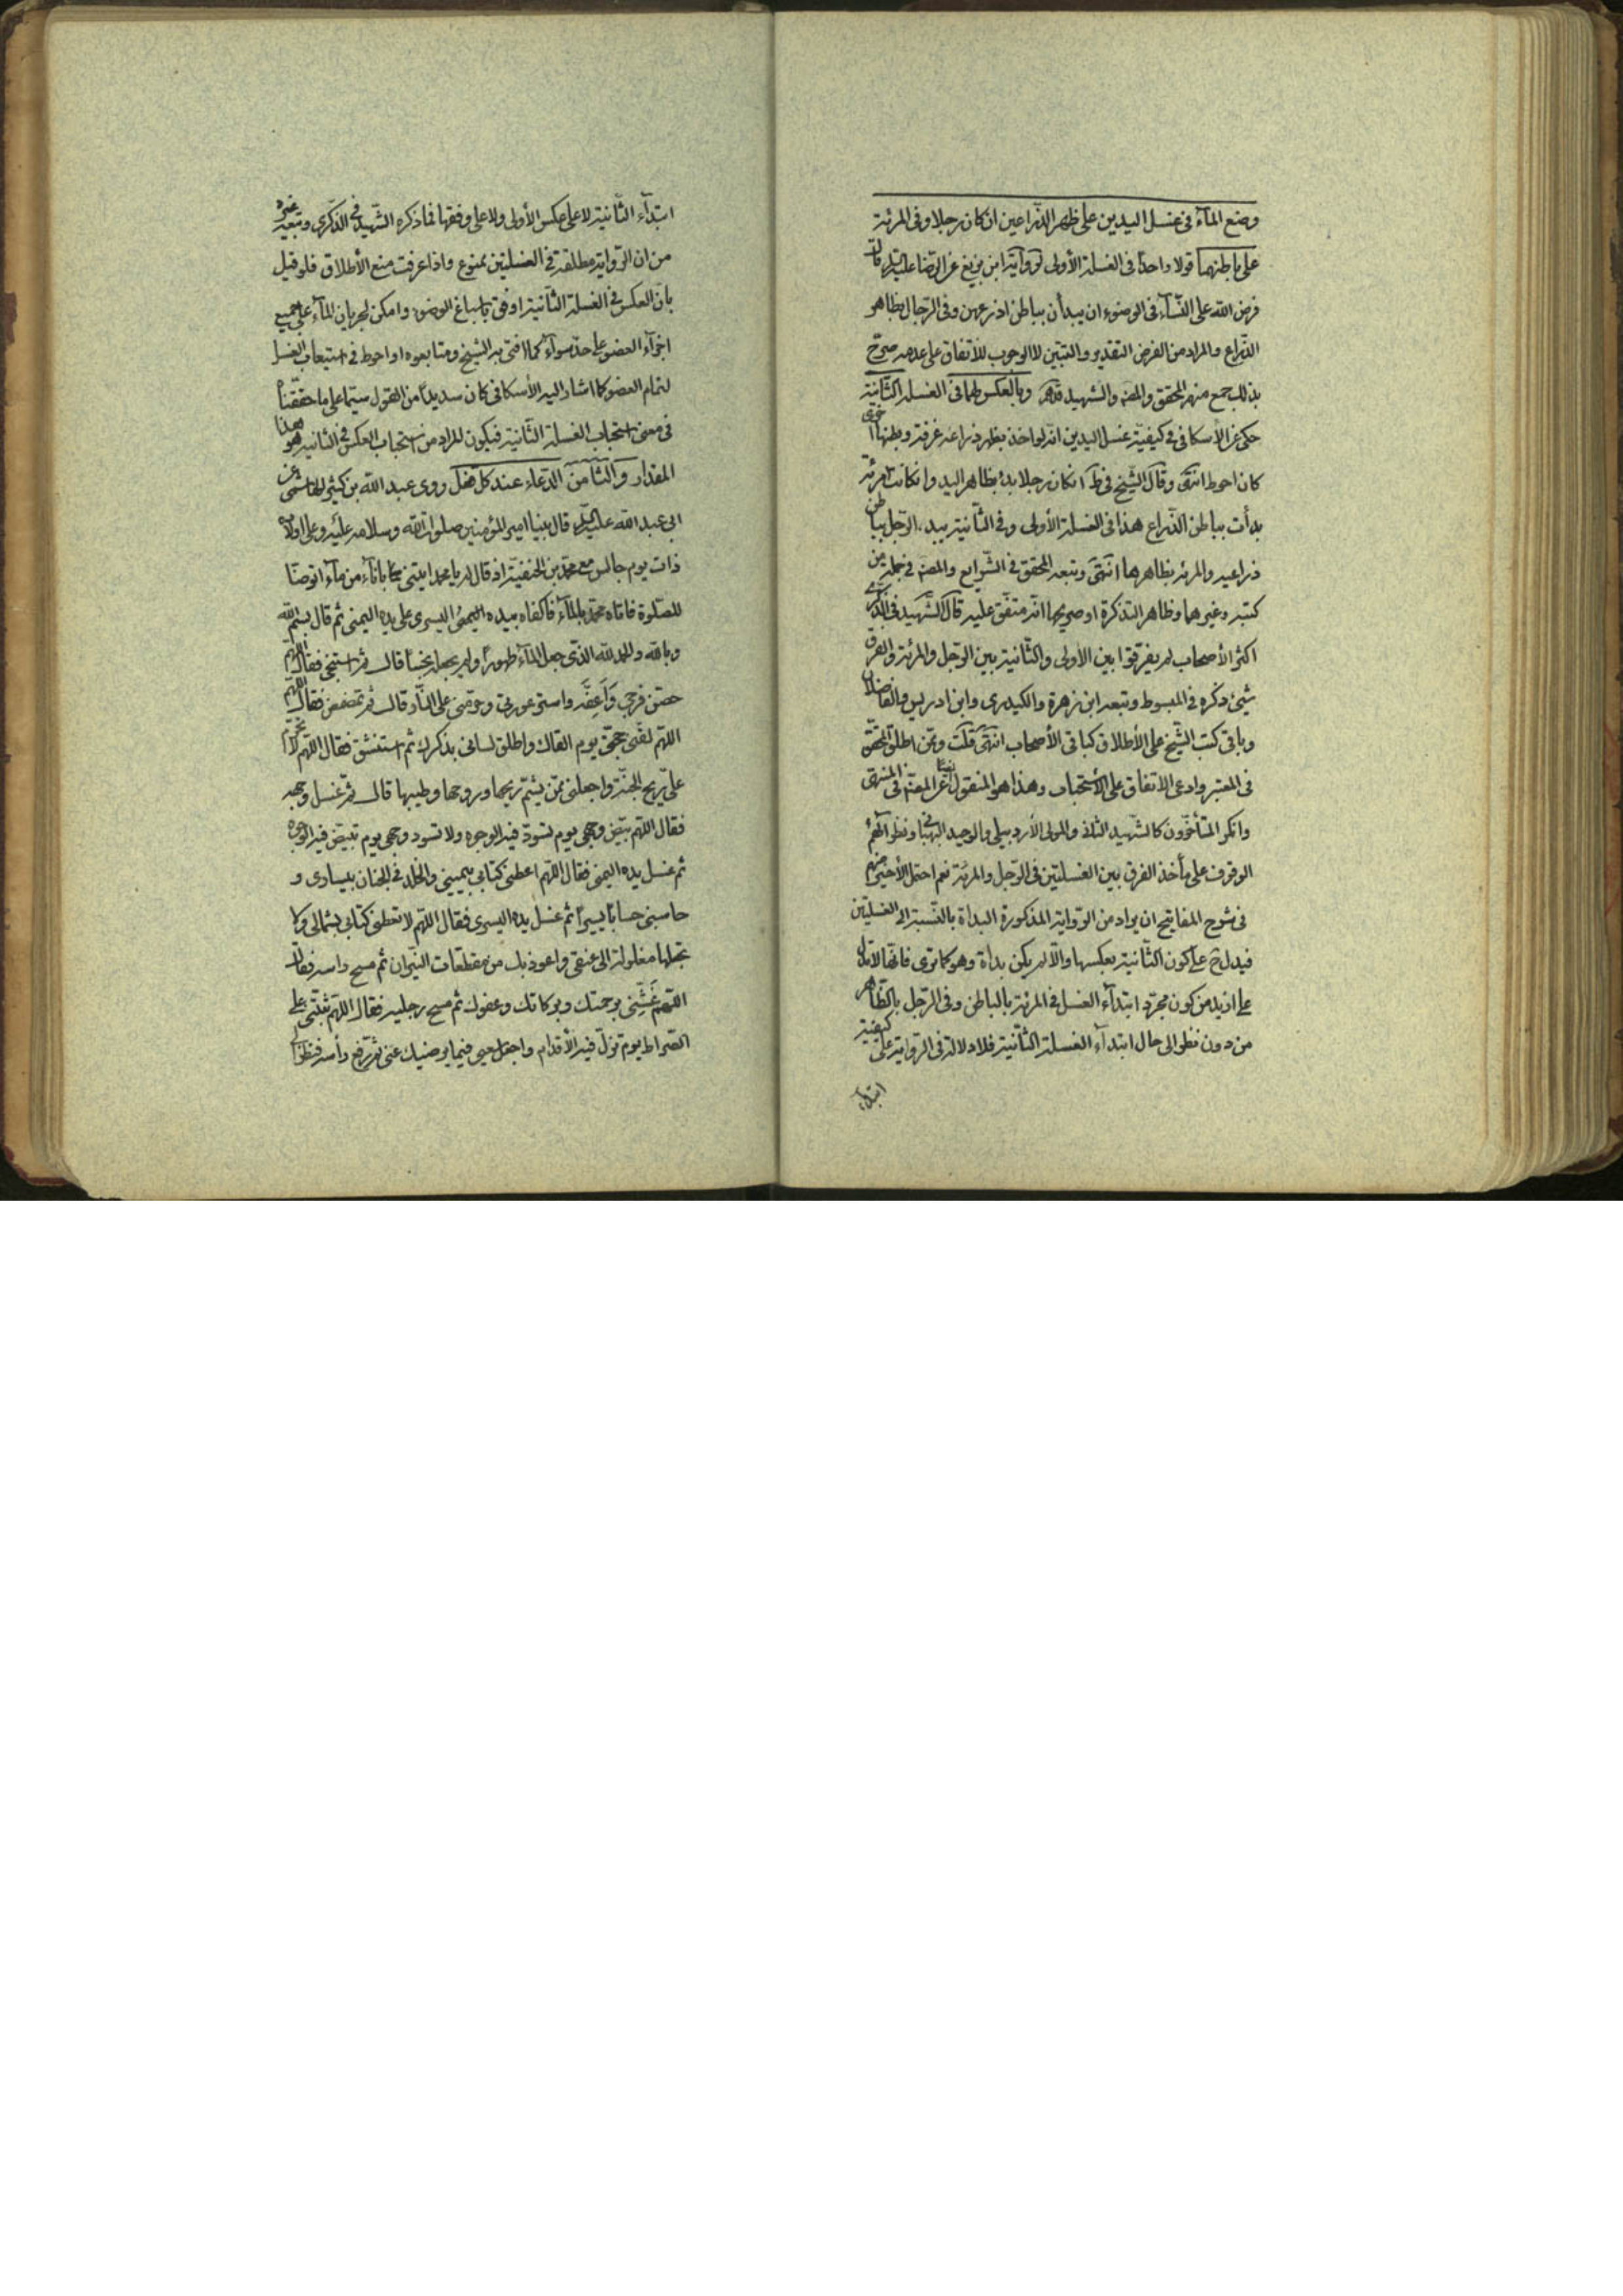 وضع المآء فى غسل اليدين على ظهر الذراعين ان كان رجلا وفى المرئة
على باطنهما قولا واحدًا فى الغسلة الأولى لرواية ابن بزيع عن الرضا عليه السلام قال
فرض الله على النسآء فى الوضوء ان يبدأن بباطن اذرعهن وفى الرجال بظاهر
الذراع والمراد من الفرض التقدير والتبيّن لا الوجوب للأتفاق على عدمه صرّح
بذلك جمع منهم المحقق والمصنف والشهيد وبالعكس لهما فى الغسلة الثانية
حكى عن الأسكافى فى كيفية غسل اليدين انه لو اخذ بظهر ذراعه غرفة وبطنها اخرى
كان احوط انتهى وقال الشيخ فى ط ان كان رجلا بدء بظاهر اليد وان كانت امرئة
بدأت بباطن الذراع هذا فى الغسلة الأولى وفى الثانية يبدء الرجل بباطن
ذراعيه والمرئة بظاهرها انتهى وتبعه المحقق فى الشرايع والمصنف فى جملة من
كتبه وغيرهما وظاهر التذكرة او صريحها انه متفق عليه قال الشهيد فى الذكرى
اكثر الأصحاب لم يفرقوا بين الأولى والثانية بين الرجل والمرئة والفرق
شيئ ذكره فى المبسوط وتبعه ابن زهرة والكيدرى وابن ادريس والفاضلان
وباقى كتب الشيخ على الأطلاق كباقى الأصحاب انتهى قلت وممن اطلق المحقق
فى المعتبر وادعى الاتفاق على الأستحباب وهذا هو المنقول ايضا عن المصنف فى المنتهى
وانكر المتأخرون كالشهيد الثانى والمولى الأردبيلى والوحيد البهبهانى ونظرائهم
الوقوف على مأخذ الفرق بين الغسلتين فى الرجل والمرئة نعم احتمل الأخير منهم
فى شرح المفاتيح ان يراد من الرواية المذكورة البدأة بالنسبة الى الغسلتين
فيدل ح على كون الثانية بعكسها والا لم يكن بدأة وهو كما ترى فانها لا تدل
على ازيد من كون مجرد ابتدآء الغسل فى المرئة بالباطن وفى الرجل بالظاهر
من دون نظر الى حال ابتدآء الغسلة الثانية فلا دلالة فى الرواية على كيفية
ابتدآء
ابتدآء الثانية لا على عكس الأولى ولا على وفقها فما ذكره الشهيد فى الذكرى وتبعه غيره
من ان الرواية مطلقة فى الغسلتين ممنوع واذا عرفت منع الأطلاق فلو قيل
بان العكس فى الغسلة الثانية اوفق باسباغ الوضوء وامكن لجريان المآء على جميع
اجزآء العضو على حد سوآء كما افتى به الشيخ ومتابعوه او احوط فى استيعاب الغسل
لتمام العضو كما اشار اليه الأسكافى كان سديدًا من القول سيما على ما حققناه
فى معنى استحباب الغسلة الثانية فيكون المراد من استحباب العكس فى الثانية هو هذا
المقدار والثامن الدعاء عند كل فعل روى عبد الله بن كثير الهاشمى عن
ابى عبد الله عليه السلام قال بينا امير المؤمنين صلوات الله وسلامه عليه وعلى اولاده
ذات يوم جالس مع محمد بن الحنفية اذ قال له يا محمد ايتنى بانآء من مآء اتوضأ
للصلوة فاتاه محمد بالمآء فاكفاه بيده اليسرى على يده اليمنى ثم قال بسم الله
وبالله والحمد لله الذى جعل المآء طهورًا ولم يجعله نجسًا قال ثم استنجى فقال اللهم
حصن فرجى وَاَعِفَّه واستر عورتى وحرمنى على النار قال ثم تمضمض فقال اللهم
اللهم لقنى حجتى يوم القاك واطلق لسانى بذكرك ثم استنشق فقال اللهم لا تحرم
على ريح الجنة واجعلنى ممن يشم ريحها وروحها وطيبها قال ثم غسل وجهه
فقال اللهم بيض وجهى يوم تسود فيه الوجوه ولا تسود وجهى يوم تبيض فيه الوجوه
ثم غسل يده اليمنى فقال اللهم اعطنى كتابى بيمينى والخلد فى الجنان بيسارى و
حاسبنى حسابًا يسيرًا ثم غسل يده اليسرى فقال اللهم لا تعطنى كتابى بشمالى ولا
تجعلها مغلولة الى عنقى واعوذ بك من مقطعات النيران ثم مسح راسه فقال
اللهم غَشِّنى برحمتك وبركاتك وعفوك ثم مسح رجليه فقال اللهم ثبتنى على
الصراط يوم تزل فيه الأقدام واجعل سعيى فيما يرضيك عنى ثم رفع رأسه فنظر الى